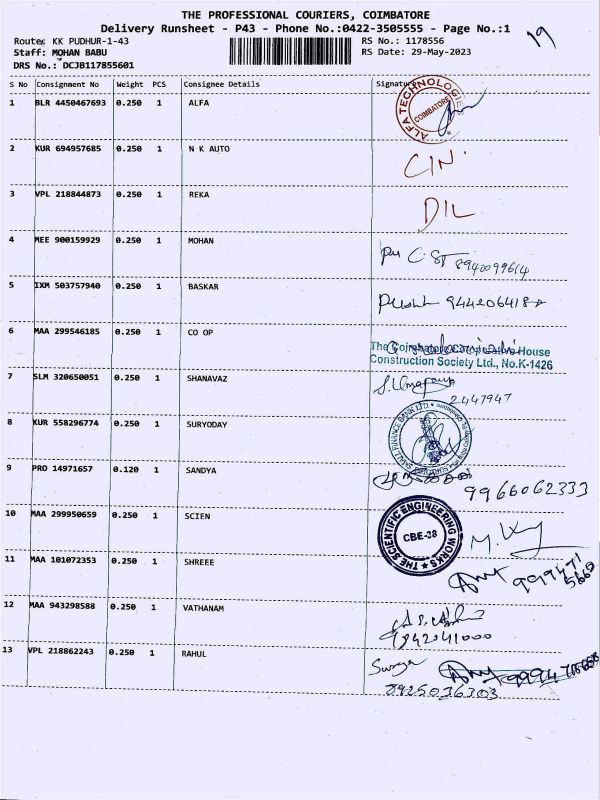 THE PROFESSIONAL COURIERS, COIMBATORE
Delivery Runsheet - P43 - Phone No.:0422-3505555 - Page No.:1
19
Route: KK PUDHUR-1-43
RS No.: 1178556
Staff: MOHAN BABU
RS Date: 29-May-2023
DRS No.: DCJB117855601
S No Consignment No Weight PCS Consignee Details Signature
1 BLR 4450467693 0.250 1 ALFA
ALFA TECHNOLOGIES COIMBATORE
2 KUR 694957685 0.250 1 N K AUTO
CIN.
3 VPL 218844873 0.250 1 REKA
DIL
4 MEE 900159929 0.250 1 MOHAN
8940099614
5 IXM 503757940 0.250 1 BASKAR
6 MAA 299546185 0.250 1 CO OP
The Coimbatore Co-operative House
Construction Society Ltd., No.K-1426
7 SLM 320650051 0.250 1 SHANAVAZ
2447947
8 KUR 558296774 0.250 1 SURYODAY
SMALL FINANCE BANK LTD
9 PRO 14971657 0.120 1 SANDYA
9966062333
10 MAA 299950659 0.250 1 SCIEN
THE SCIENTIFIC ENGINEERING WORKS
CBE-38
11 MAA 101072353 0.250 1 SHREEE
12 MAA 943298588 0.250 1 VATHANAM
9842041000
13 VPL 218862243 0.250 1 RAHUL
Surya
8925036303